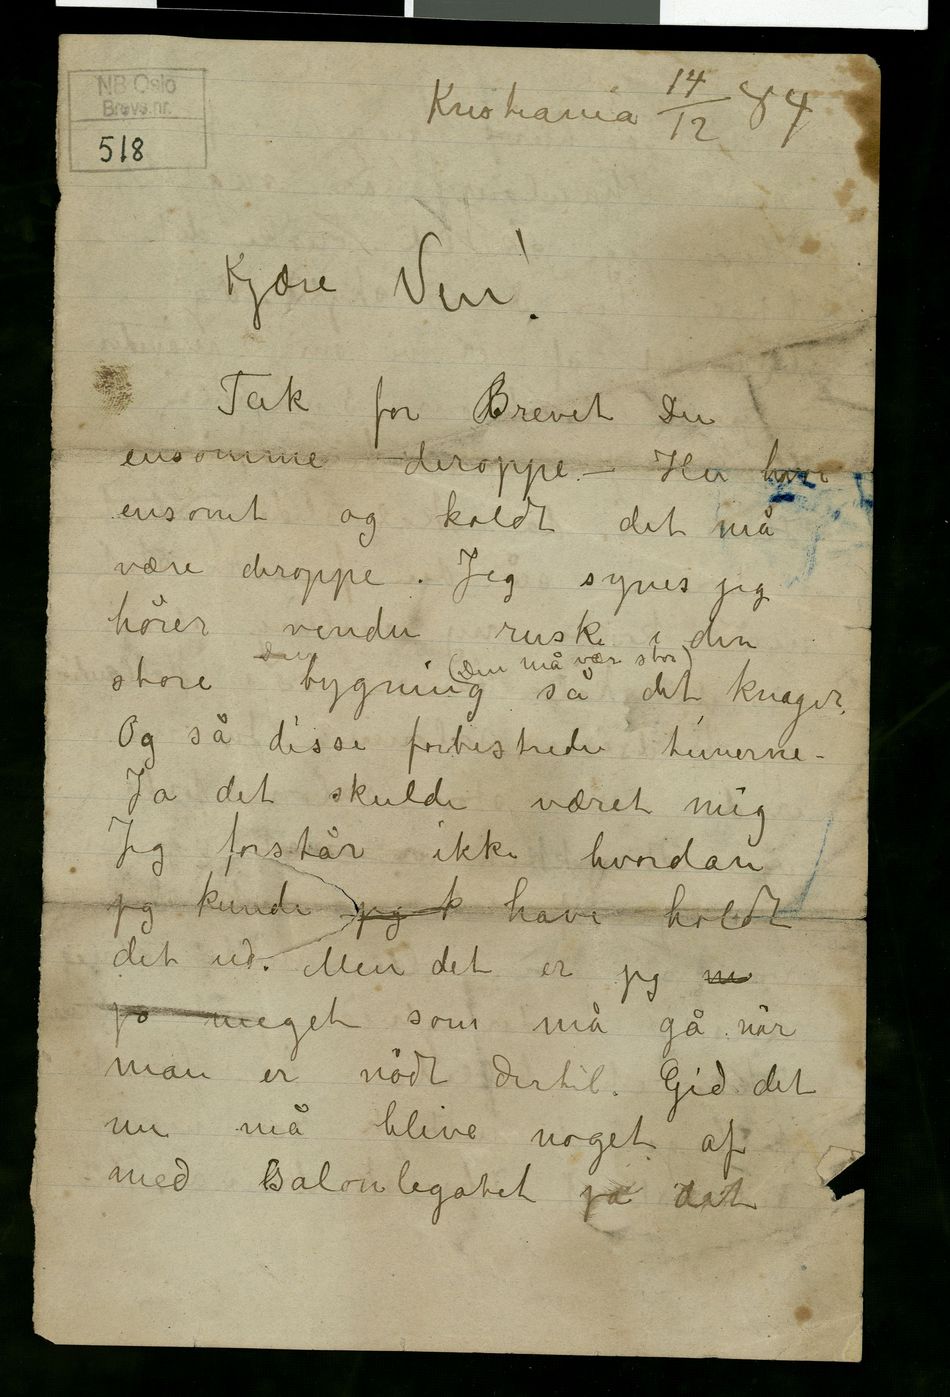 NB Oslo
Brevs.nr.
518
Kristiania 14/12 84
Kjære Ven!
Tak for Brevet Du
ensomme deroppe – Hu hvor
ensomt og koldt det må
være deroppe. Jeg synes jeg
hörer vinden ruske i den
den (den må være stor)
store bygning så det knager.
Og så disse forbistrede timerne –
Ja det skulde været mig
Jeg forstår ikke hvordan
jeg kunde jeg k have holdt
det ud. Men det er jeg m
jo meget som må gå når
man er nödt dertil. Gid det
nu må blive noget af
med Salonlegatet ja det